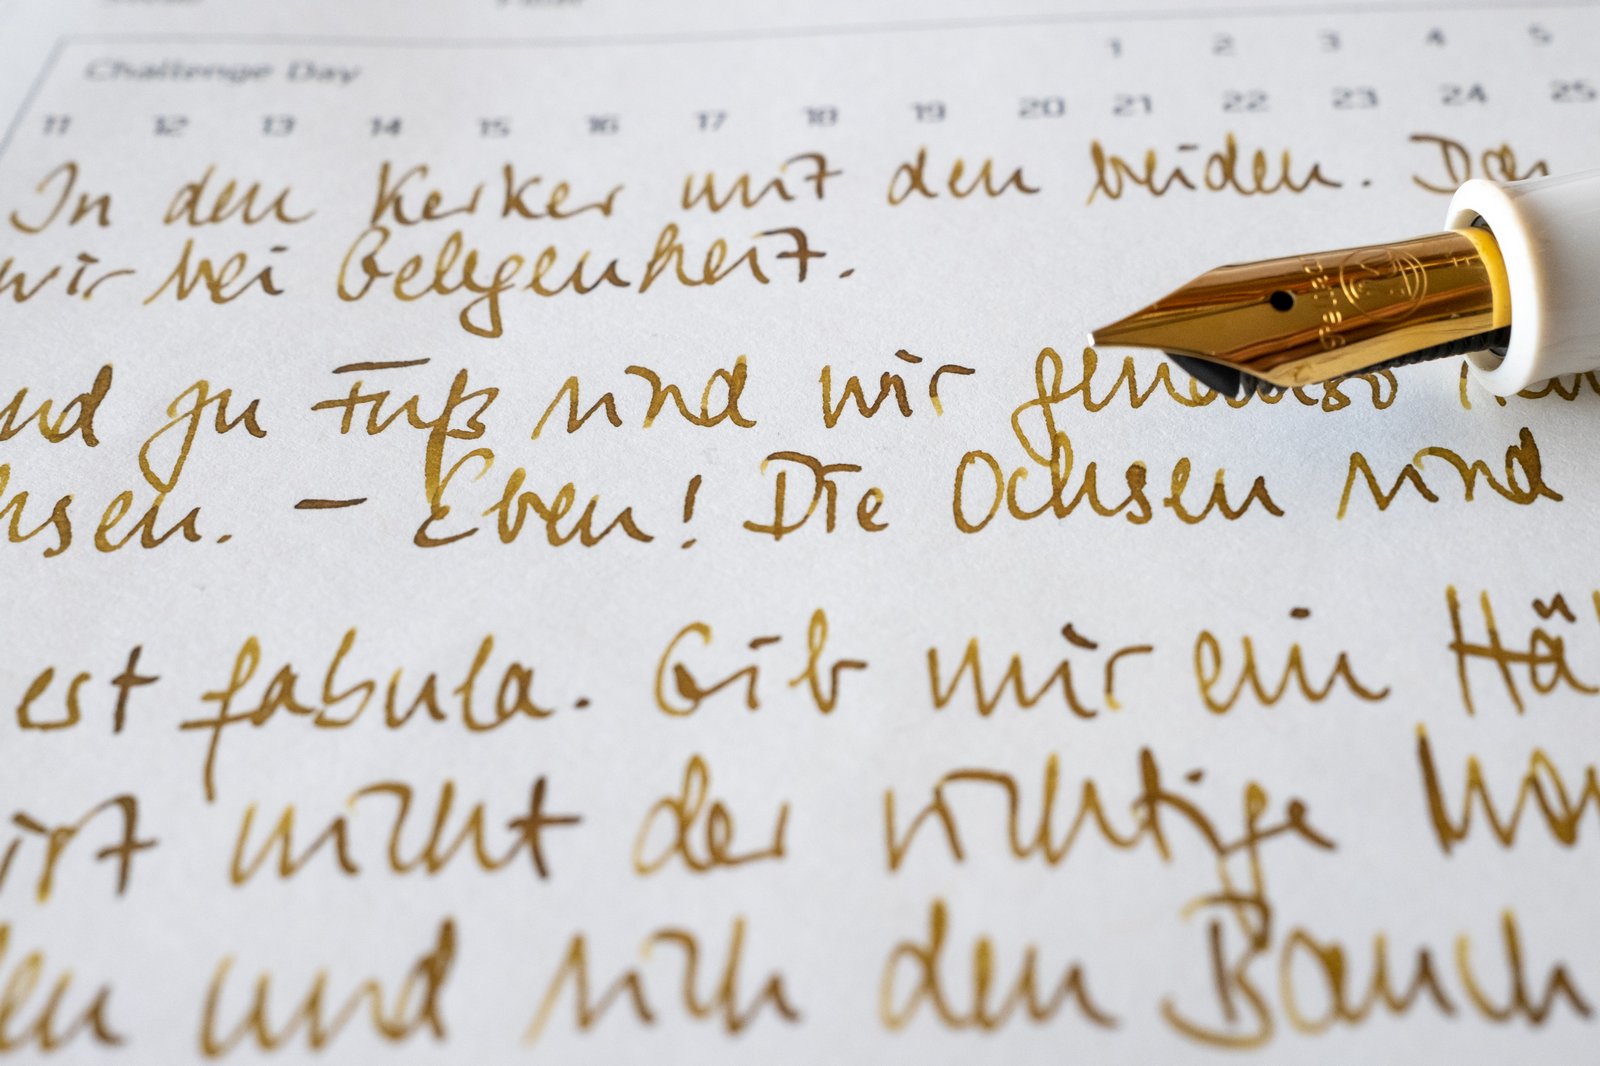 Challenge Day 1 2 3 4 5
11 12 13 14 15 16 17 18 19 20 21 22 23 24 25
In den Kerker mit den beiden. Den
wir bei Gelegenheit.
und zu Fuß sind wir genauso
hsen. - Eben! Die Ochsen sind
est fabula. Gib mir ein Hä
irst nicht der richtige
en und sich den Bauch